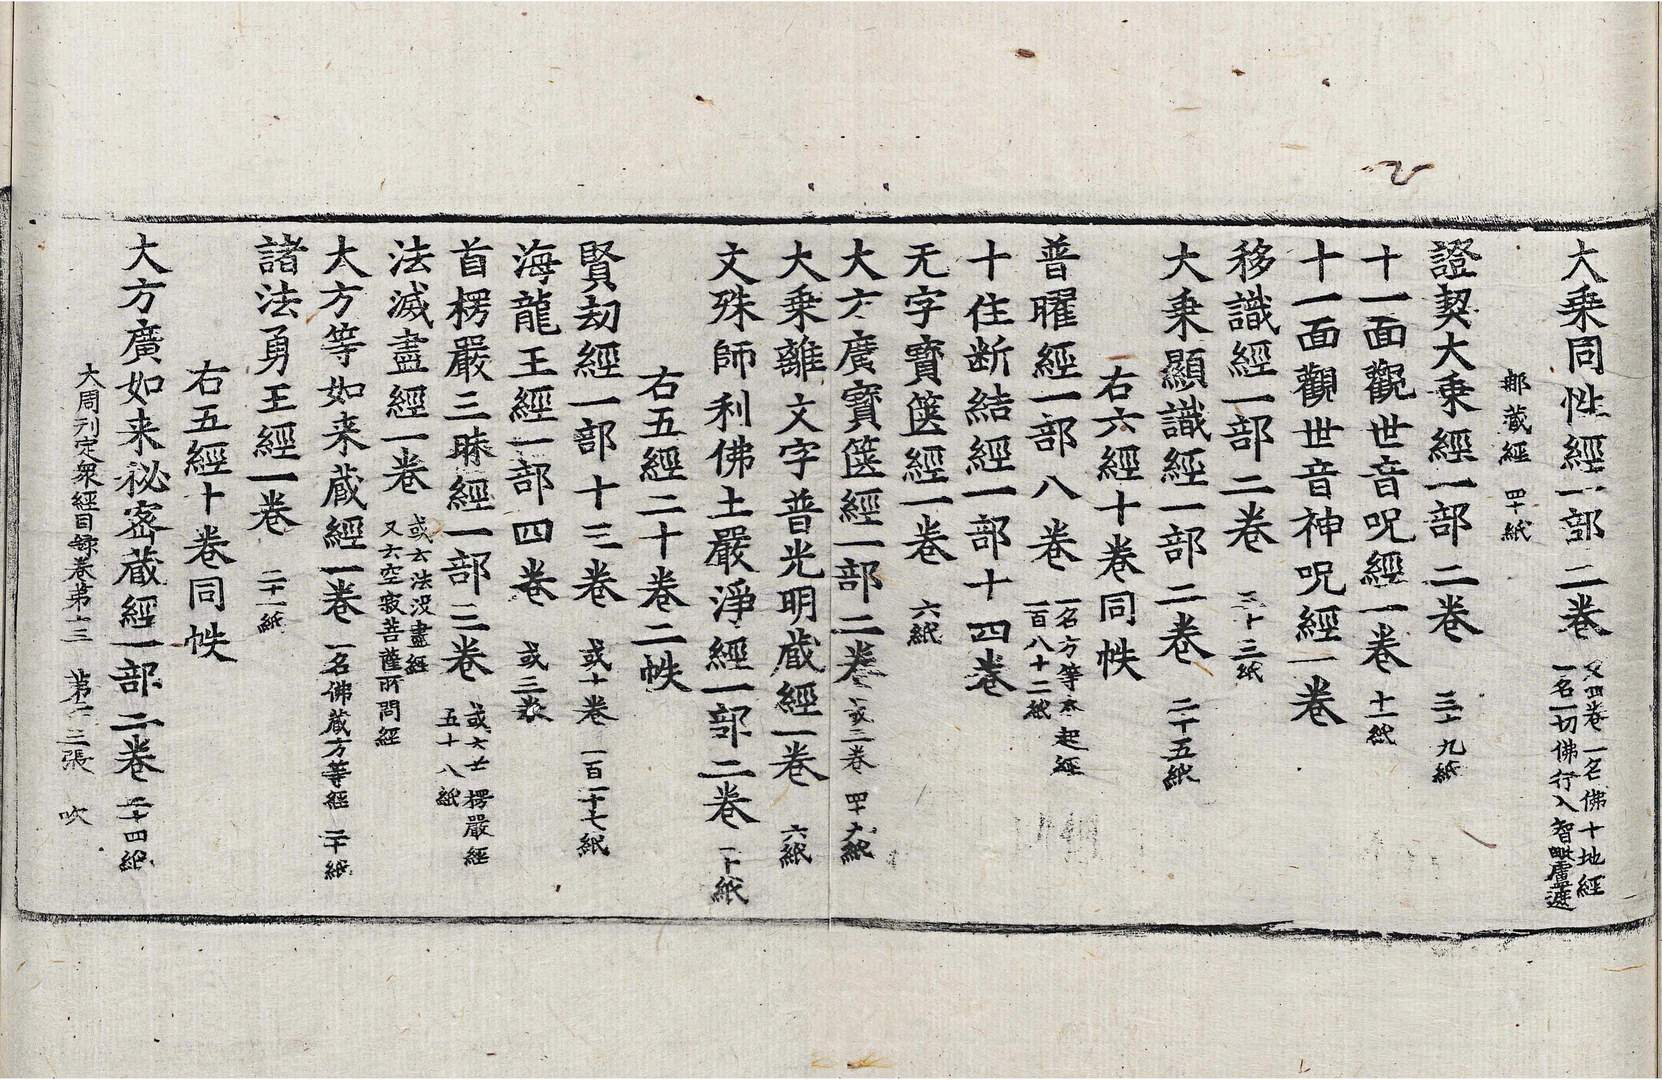 大乗同性經一部二卷 又四卷一名佛十地經
一名一切佛行入智毗盧遮
那蔵經 四十紙
證契大乗經一部二卷 三十九紙
十一面觀世音呪經一卷 十一紙
十一面觀世音神呪經一卷
移識經一部二卷 三十三紙
大乗顯識經一部二卷 二十五紙
右六經十卷同帙
普曜經一部八卷 一名方等本起經
一百八十二紙
十住断結經一部十四卷
无字寶篋經一卷 六紙
大方廣寶篋經一部二卷 或三卷 四十六紙
大乗離文字普光明蔵經一卷 六紙
文殊師利佛土嚴淨經一部二卷 二十紙
右五經二十卷二帙
賢劫經一部十三卷 或十卷 一百一十七紙
海龍王經一部四卷 或三卷
首楞嚴三昧經一部三卷 或六 楞嚴經
五十八紙
法滅盡經一卷 或云法没盡經
又云空寂菩薩所問經
大方等如来蔵經一卷 一名佛蔵方等經 二十紙
諸法勇王經一卷 二十一紙
右五經十卷同帙
大方廣如来祕密蔵經一部二卷 三十四紙
大周刋定衆經目録卷第十三 第二三張 吹